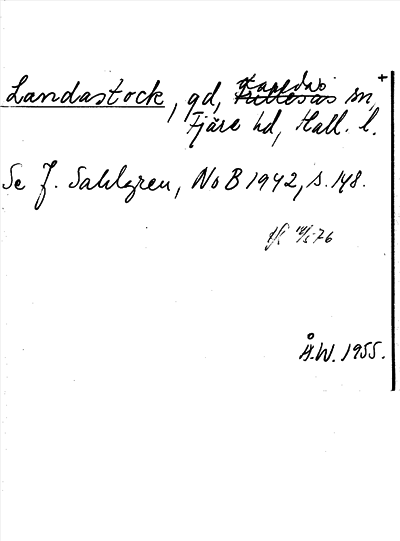 +
Landastock, gd, Karedas Frillesås sn,
Fjäre hd, Hall. l.
Se J. Sahlgren, NoB 1942, s. 148.
76
Å.W. 1955.